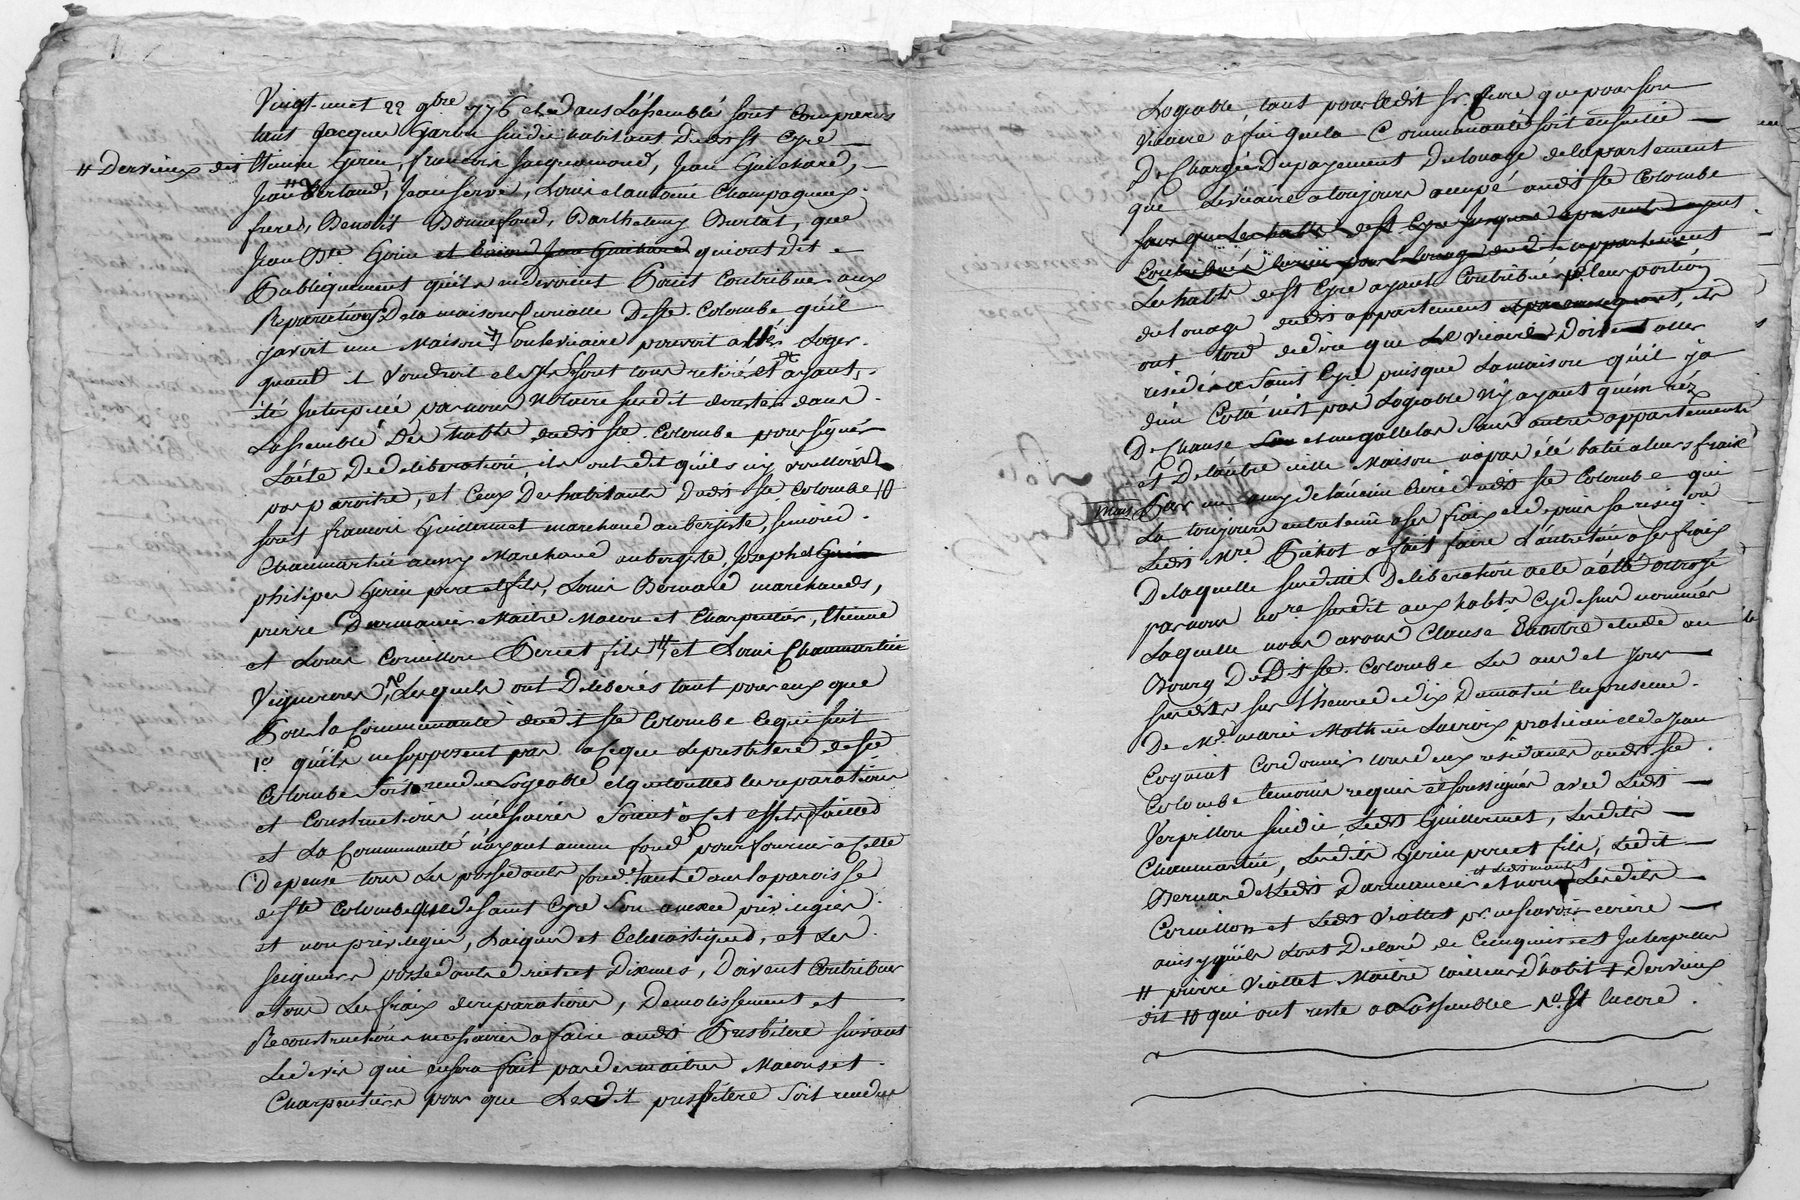 Vingt-un et 22 9bre 776 et de dans L'assemblé sont Comprens
tant Jacques Garon sindic habitant Dudit St Cyre
# Dervieux dit Etienne Gorin, francois Jacquemond, Jean Guichard,
Jean Berlaud, Jean Servé, Louis et antoine Champagneux
freres, Benoît Bonnefond, Barthelemy Burlat, que
Jean Bte Gorin et Jean Guichard qui ont Dit
Publiquement qu'ils ne devoient Point Contribuer aux
Reparations De la maison Curialle De Ste Colombe qu'il
y avoit une Maison ou le vicaire pouvoit aller Loger
quand il voudroit et se sont tous retirés et ayant
été Interpellé par nous Notaire susdit d'entrer dans
L'assemblé Des habts dudit Ste Colombe pour signer
L'acte De deliberation, ils ont dit qu'ils n'y vouloient
pas paroitre, et Ceux Des habitants Dudit Ste Colombe
sont francois Guillermet marchand aubergiste, simond
Chaumartin aussy Marchand aubergiste, Joseph et
philipes Gorin pere et fils, Louis Bernard marchands,
pierre Darmancier Maitre Macon et Charpentier, Etienne
et Louis Cornillon Pere et fils # et Louis Chaumartin
Vignerons, Lesquels ont Deliberés tant pour eux que
Pour la Communauté dudit Ste Colombe Ce qui suit
1o qu'ils ne sopposent pas a ce que Le presbitere de Ste
Colombe soit rendu Logeable et que toutes les reparations
et Constructions nécessaires soient à Cet effet faites
et La Communauté n'ayant aucun fond pour fournir a Cette
Depense tous Les possedants fonds tant dans la paroisse
de Ste Colombe que de Saint Cyre Son annexe privilegiés
et non privilegiés, Laiques et Eclesiastiques, et Les
seigneurs possedants Cens et Dixmes, Doivent Contribuer
a tous Les frais de reparations, Demolissement et
Reconstructions necessaires a faire audit Presbitere suivant
Le devis qui en sera fait par des maitres Macons et
Charpentiers pour que Ledit presbitere soit rendu
Logeable tant pour Ledit Sr. Cure que pour son
Vicaire à fin que la Communauté soit ensuitte
De Chargée Du payement Du louage de lappartement
que Le vicaire a toujours occupé audit Ste Colombe
Les habts de St Cyre ayant Contribué pr leur portion
du louage dudit appartement et par consequent, ils
ont tord de dire que Le vicaire Doivent aller
residér a Saint Cyre puisque La maison qu'il y a
d'un Coté n'est pas Logeable N'y ayant qu'un réz
De Chausé et un galletas sans autres appartements
et De l'autre cette Maison n'a pas été batie a leurs fraix
mais Par un amy de l'ancien Curé dudit Ste Colombe qui
La toujours entretenu a ses fraix et depuis sa resigon
Ledit Mre Pichot a fait faire L'entretien a ses fraix
De laquelle susditte Deliberation acte a été octroyé
par nous nore susdit aux habts Cy dessus nommés
Laquelle nous avons Clause
Bourg Dudit Ste. Colombe Les an et Jour
susdits sur L'heure de dix Du matin En presence
De Md. marie Mathieu Lacroix praticien et de Jean
Coignat Cordonnier tous deux residants audit Ste
Colombe temoins requis et soussignés avec Ledit
Verpillon sindic, Ledit Guillermet, Lesdits
Chaumartin, Lesdits Gorin pere et fils, Ledit
Bernard et Ledit Darmancier et non Lesdits
Cornillon et Ledit Viollet pr ne scavoir ecrire
ainsy qu'ils L'ont Declaré de Ce enquis et Interpellés
# pierre Viollet Maitre tailleur D'habit + Dervieux
dit 10 qui ont resté a L'assemblée